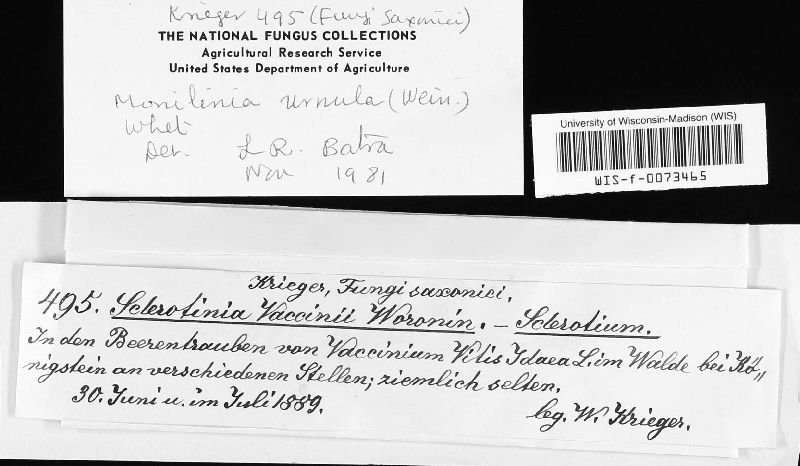 Krieger 495 (Fungi Saxonici)
THE NATIONAL FUNGUS COLLECTIONS
Agricultural Research Service
United States Department of Agriculture
Monilinia urnula (Wein.)
Whet.
Det. L R. Batra
Nov 1981
University of Wisconsin-Madison (WIS)
WIS-f-0073465
Krieger, Fungi saxonici.
495. Sclerotinia Vaccinii Woronin. — Sclerotium.
In den Beerentrauben von Vaccinium Vitis Idaea L. im Walde bei Kö„
nigstein an verschiedenen Stellen; ziemlich selten.
30. Juni u. im Juli 1889.
leg. W. Krieger.